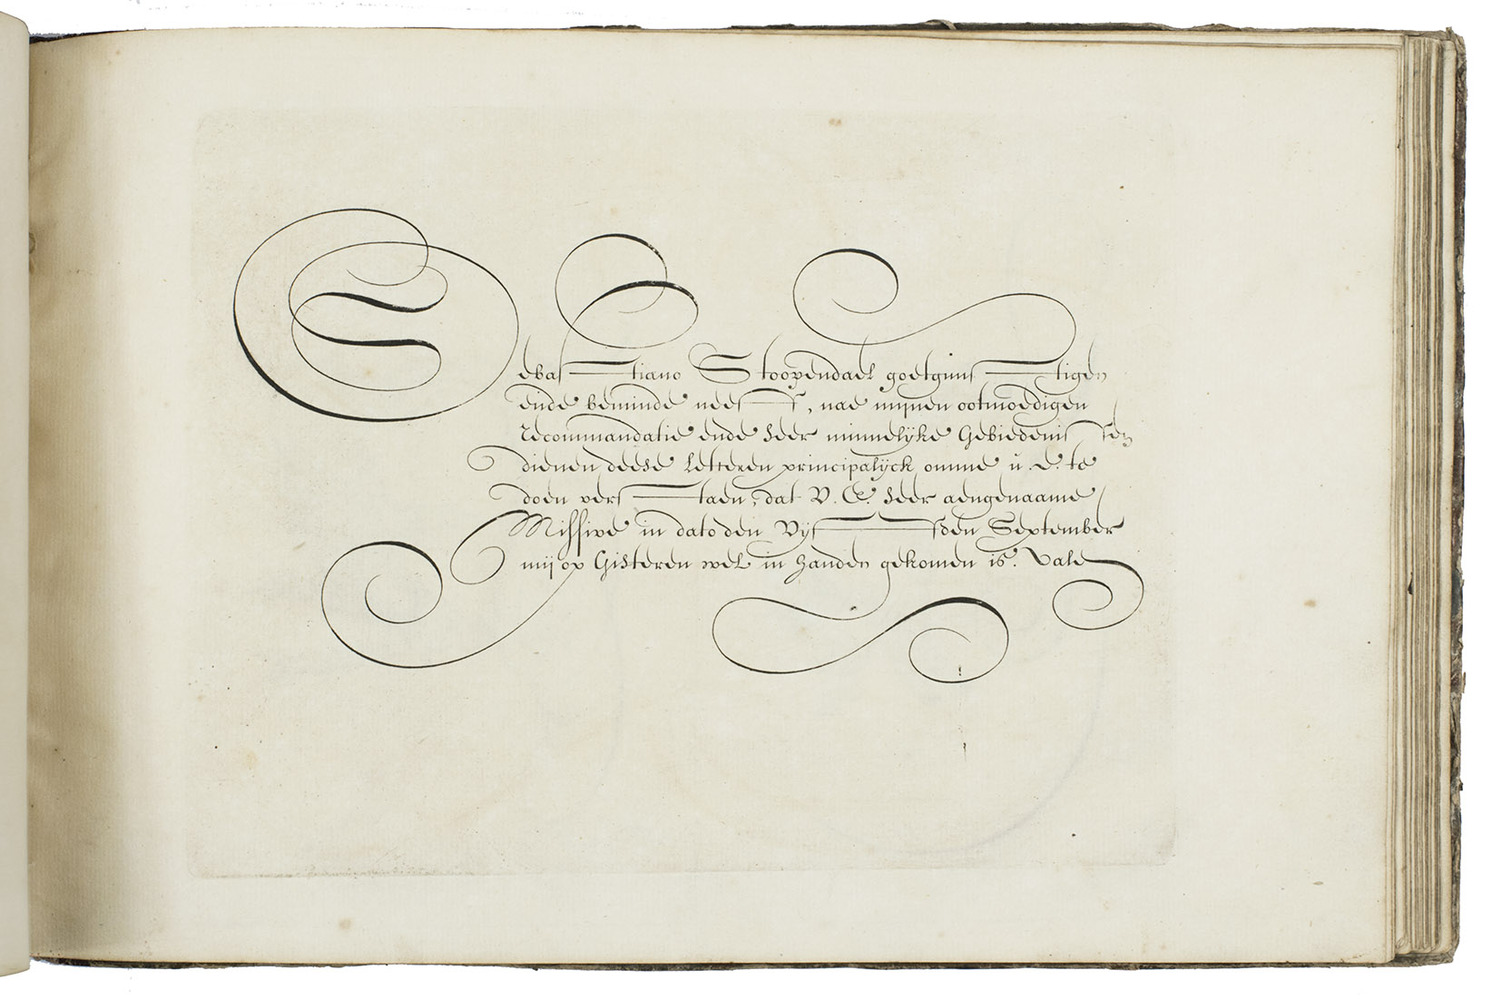 Sebastiano Stoopendael goetgunstigen
ende beminde neef, nae mijnen ootmoedigen
recommandatie ende seer minnelyke Gebiedenissen
dienen deese letteren principalijck omme u. e. te
doen verstaen, dat V. E. seer aengenaame
Missive in dato den Vijfden September
mij op Gisteren wel in handen gekomen is. Vale